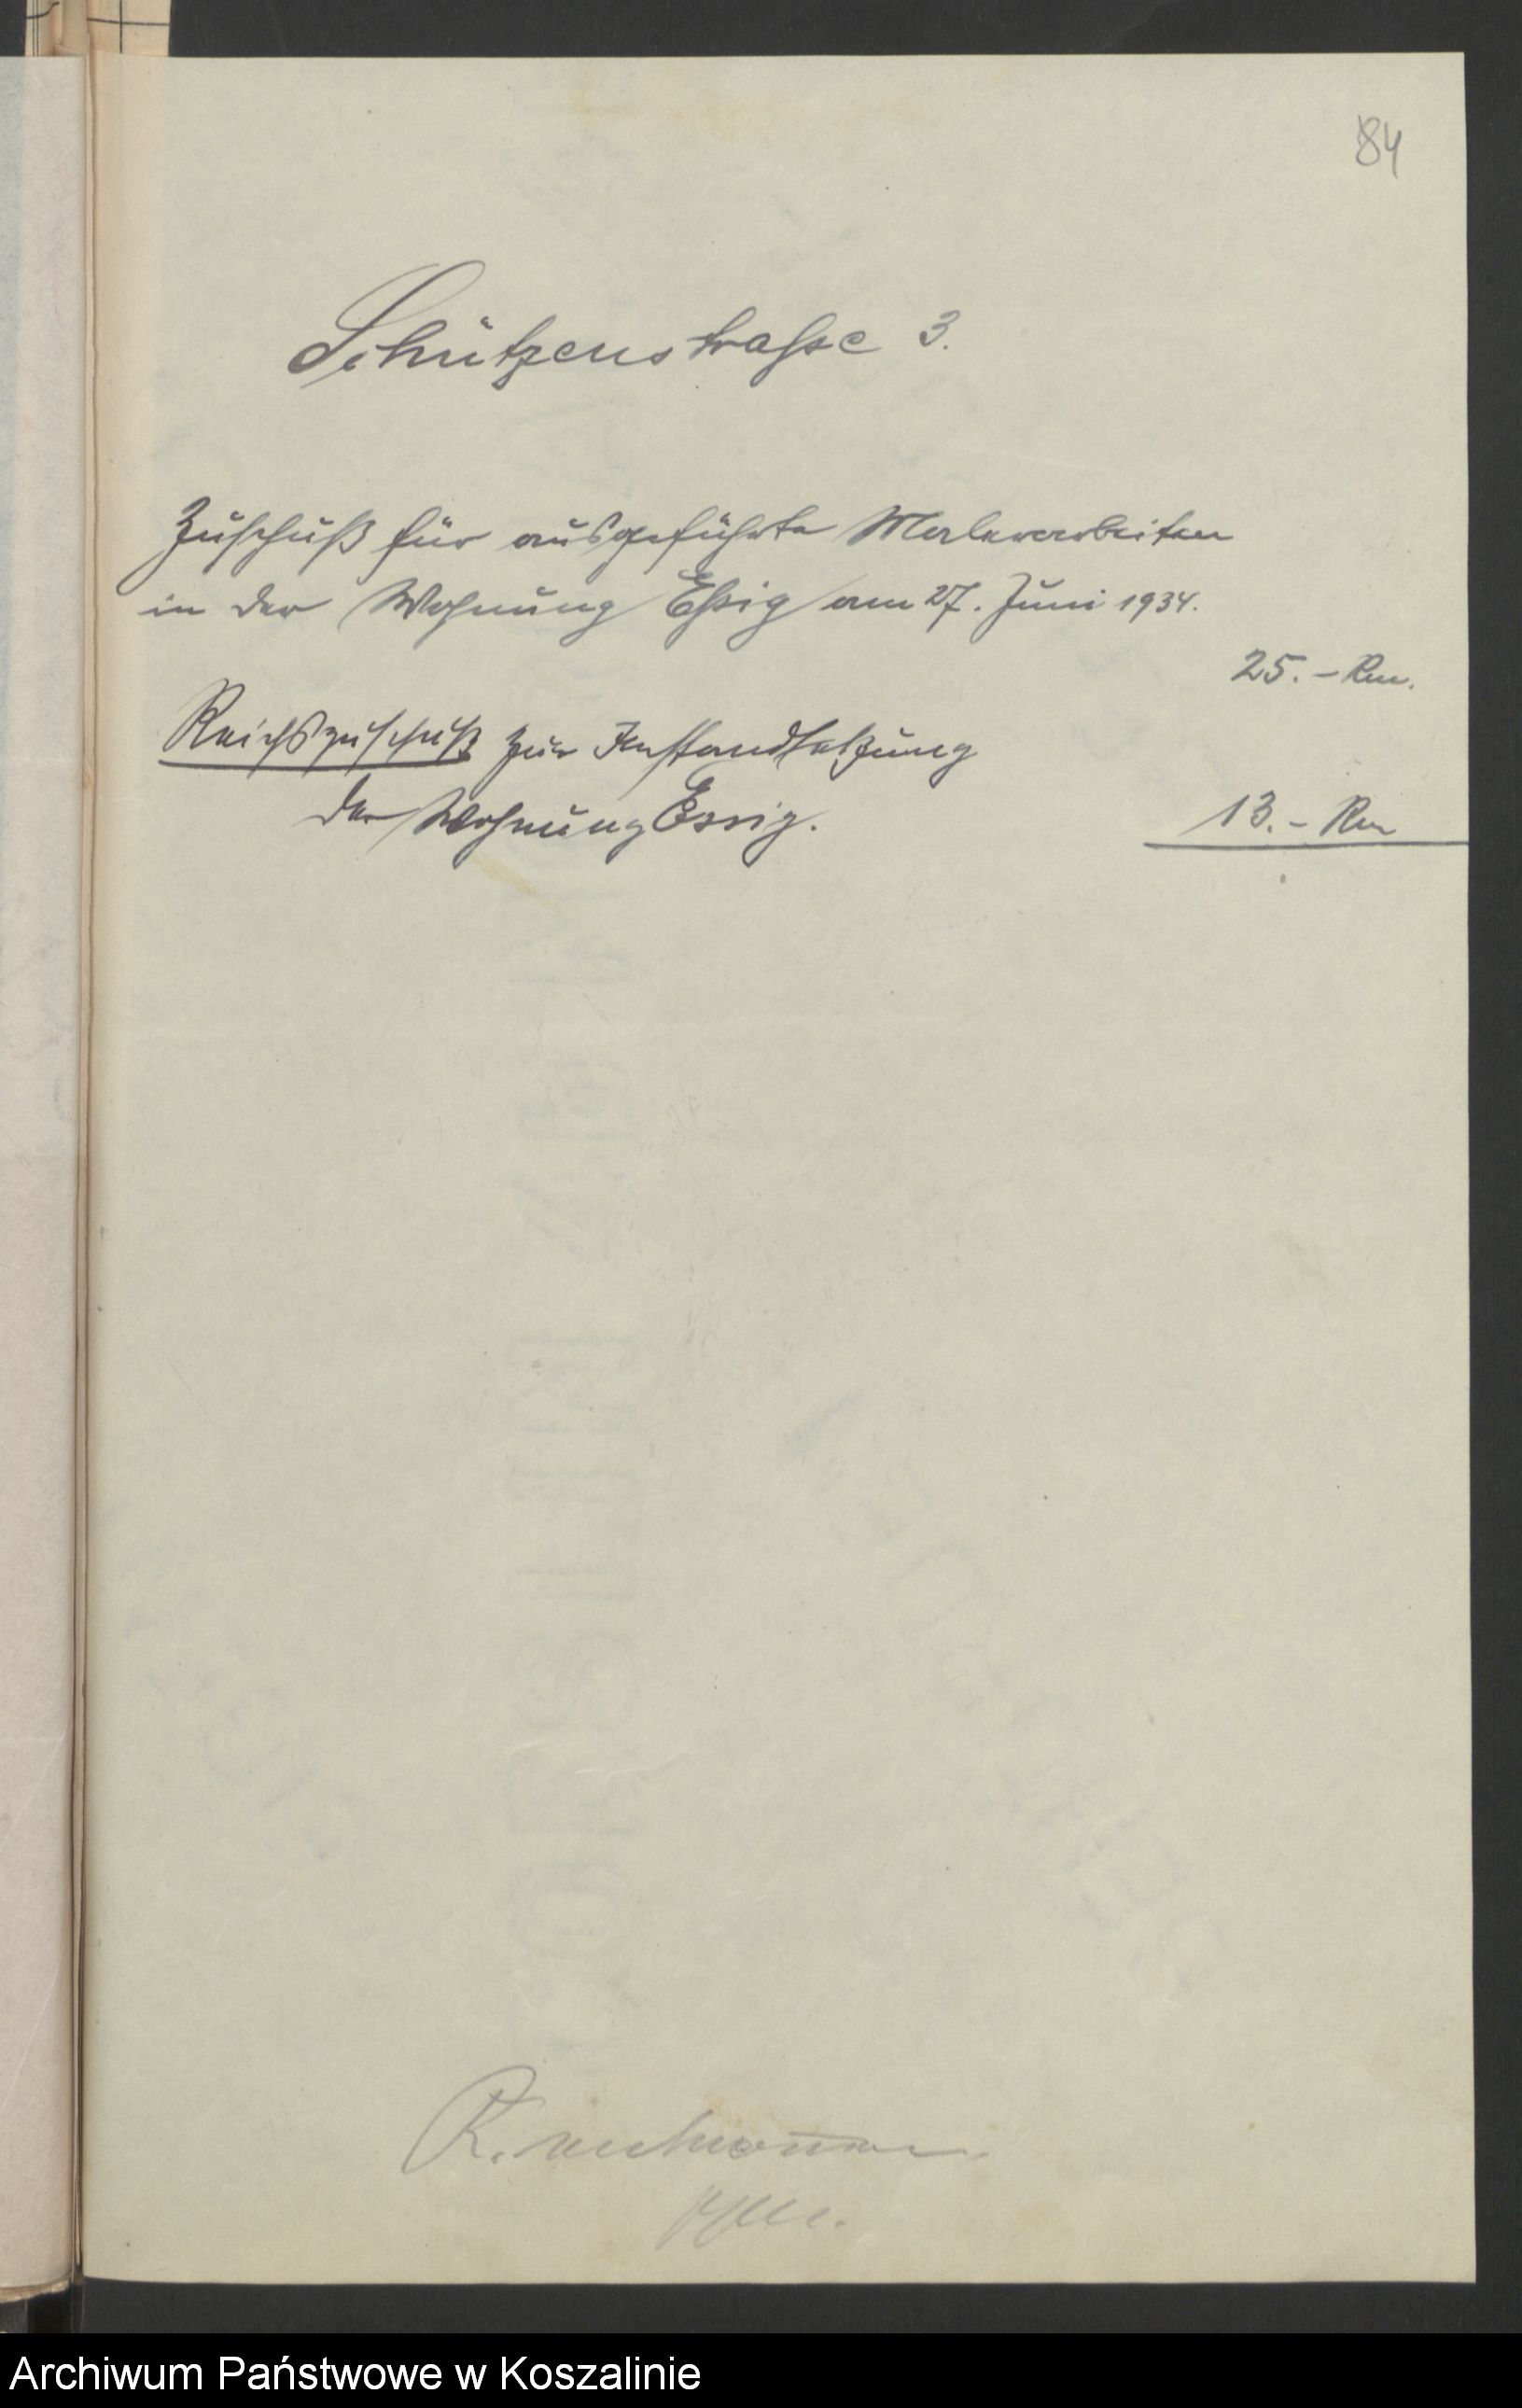 84
Schützenstrasse 3.
Zuschuß für ausgeführte Malerarbeiten
in der Wohnung Eßig am 27. Juni 1934.
25.- Rm.
Reichszuschuß zur Instandsetzung
der Wohnung Essig.
13.- Rm
R.
Archiwum Państwowe w Koszalinie